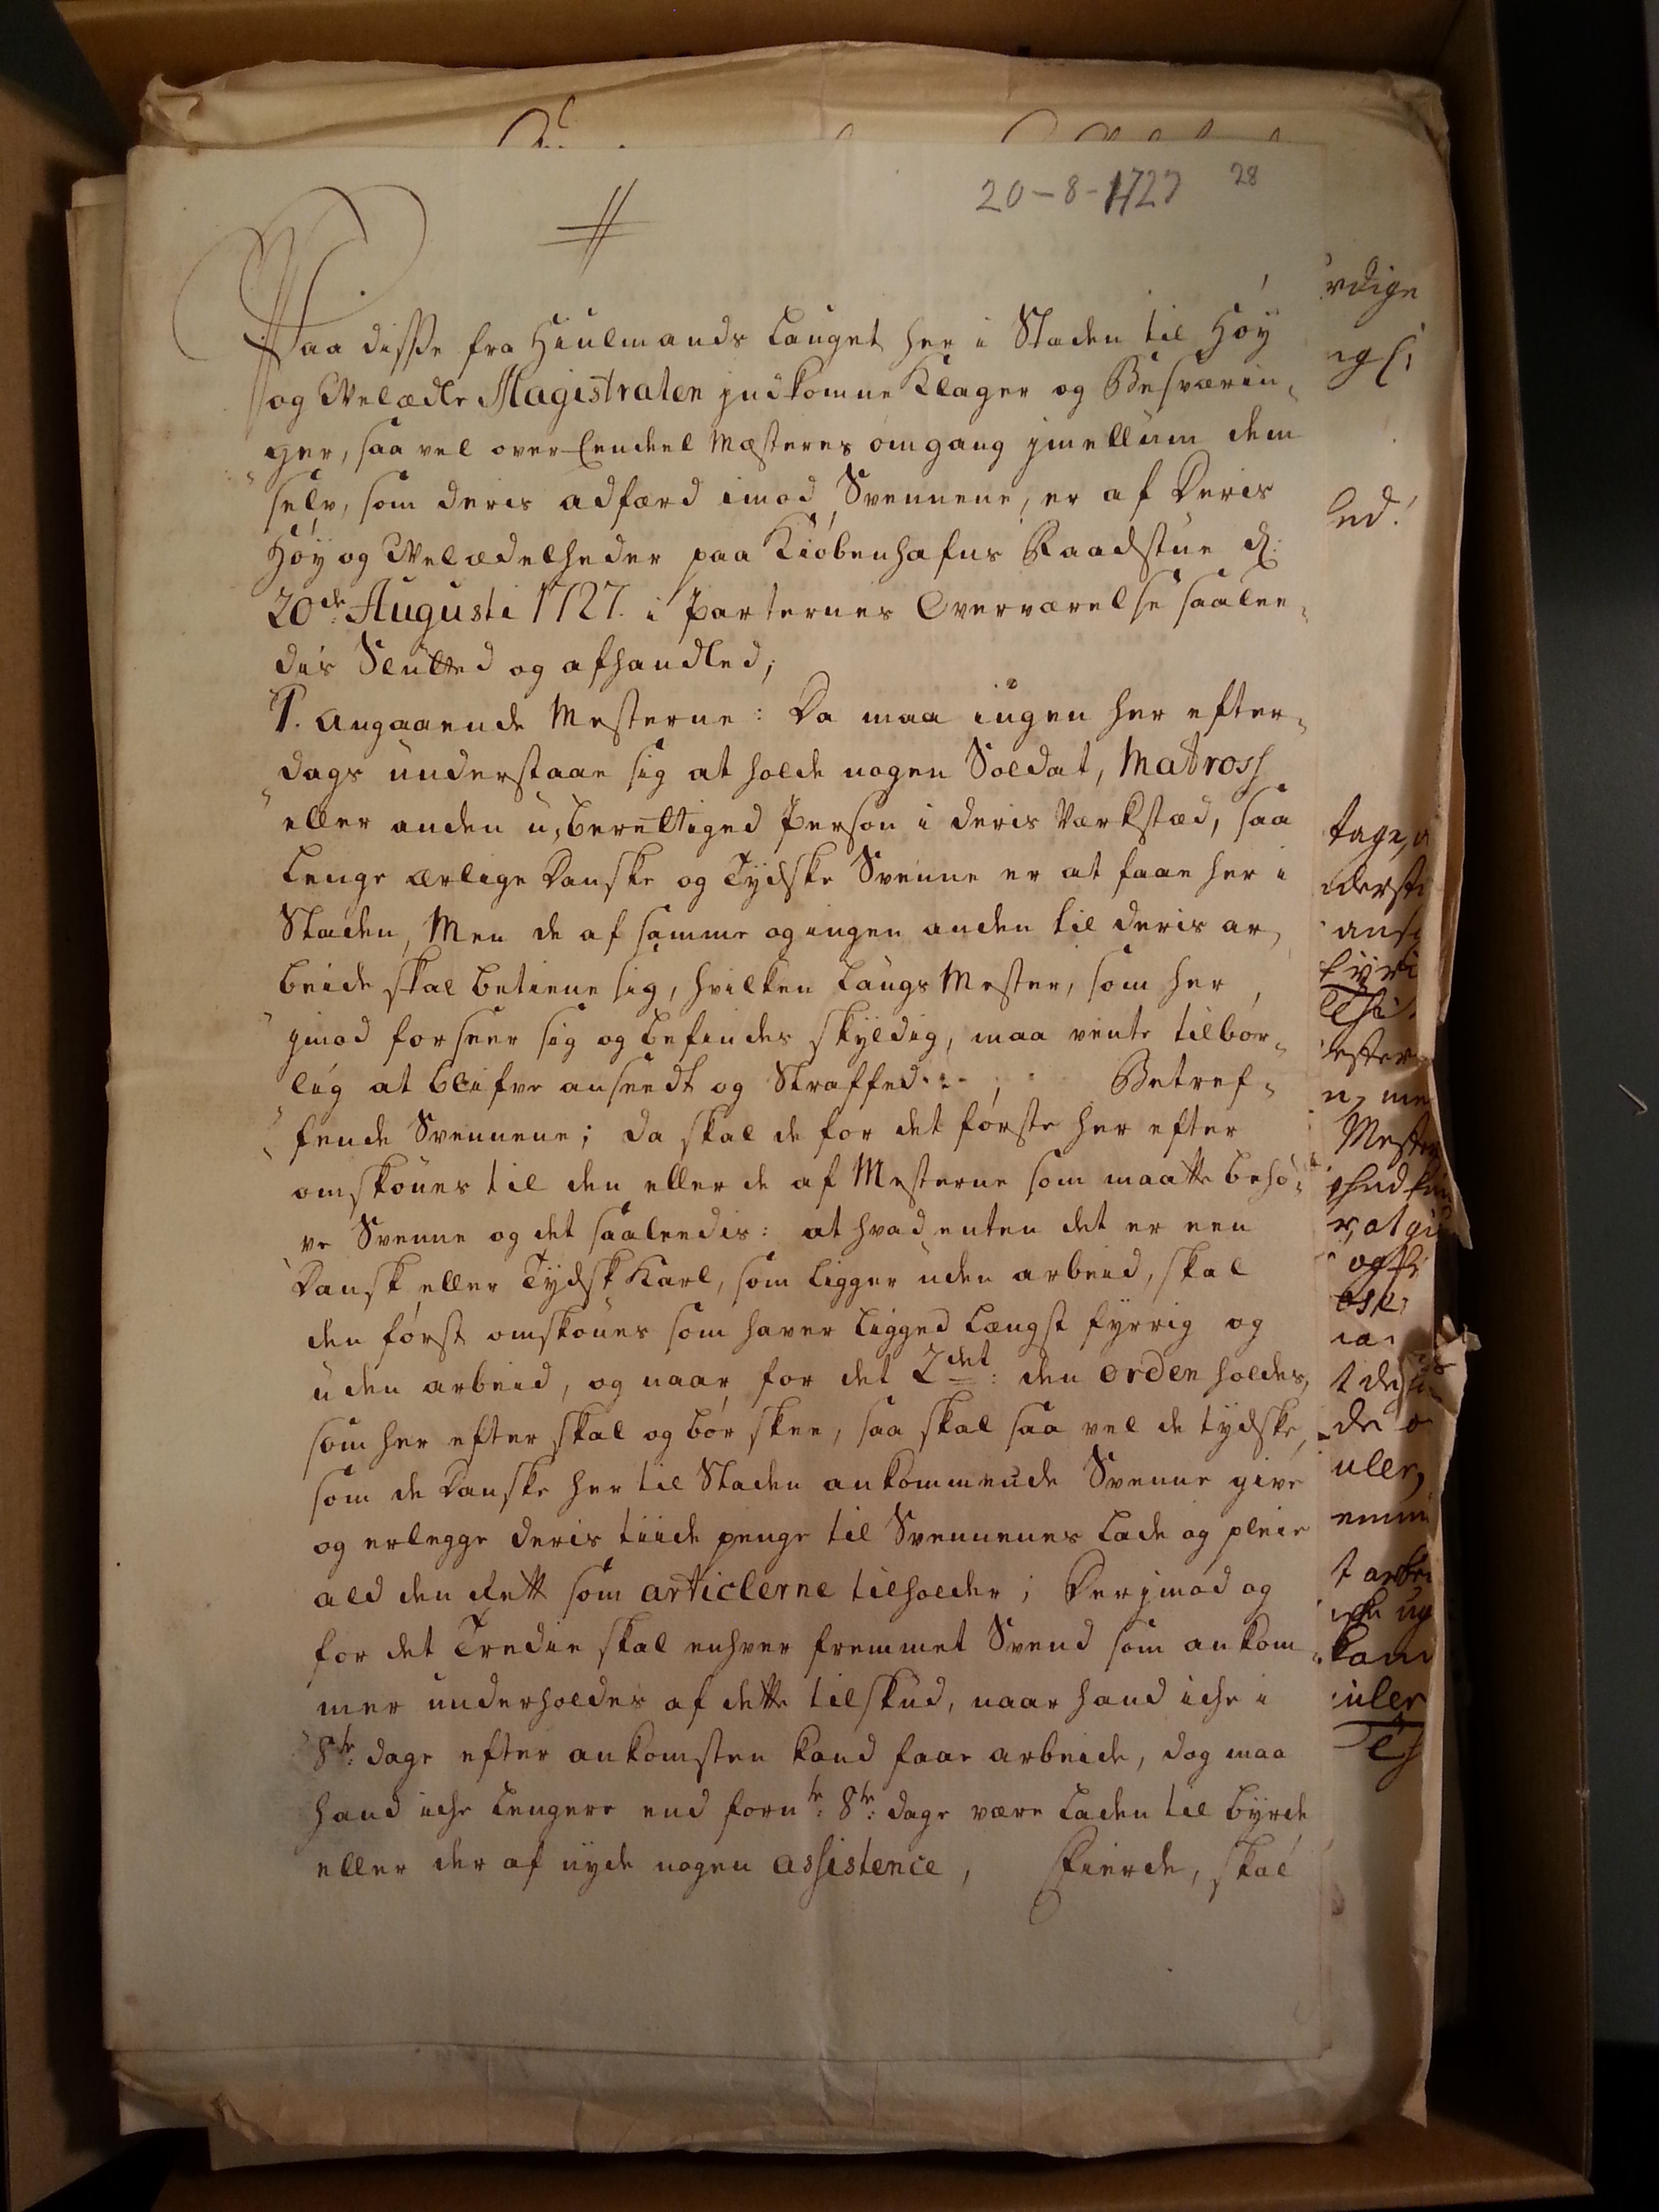 20-8-1727 28
Paa disse fra Hiulmands Lauget her i Staden til Høy
og Velædle Magistraten jndkomne Klager og Besværin,
ger, saa vel over Eendeel Mæsteres omgang jmellum dem
selv, som deris adfærd imod Svennene, er af Deris
Høy og Velædelheder paa Kiøbenhafns Raadstue d:
20de Augusti 1727. i Parternes Overværelse saalee,
dis Slutted og afhandled;
1. Angaaende Mesterne: Da maa ingen her efter,
dags understaae sig at holde nogen Soldat, Matross
eller anden u,berettiged Person i deris Værksted, saa
Lenge ærlige Danske og Tydske Svenne er at faae her i
Staden, Men de af samme og ingen anden til deris ar,
beide skal betiene sig, hvilken Laugs Mester, som her,
jmod forseer sig og befindes skyldig, maa vente tilbør,
lig at blifve anseedt og Straffed. Betref,
fende Svennene; da skal de for det første her efter
omskoues til den eller de af Mesterne som maatte behø,
ve Svenne og det saaleedis: at hvad enten det er een
Dansk eller Tydsk Karl, som ligger uden arbeid, skal
den først omskoues som haver ligged Længst fyrrig og
uden arbeid, og naar for det 2det: den orden holdes,
som her efter skal og bør skee, saa skal saa vel de tydske,
som de Danske her til Staden ankommende Svenne give
og erlegge deris tiide penge til Svennenes Lade og pleie
ald den Rett som articlerne tilholder; Derjmod og
for det Tredie skal enhver fremmet Svend som ankom,
mer underholdes af dette tilskud, naar hand iche i
8te: dage efter ankomsten kand faae arbeide, dog maa
hand iche lengere end fornte: 8te: dage være Laden til byrde
eller der af nyde nogen assistence, Fierde, skal